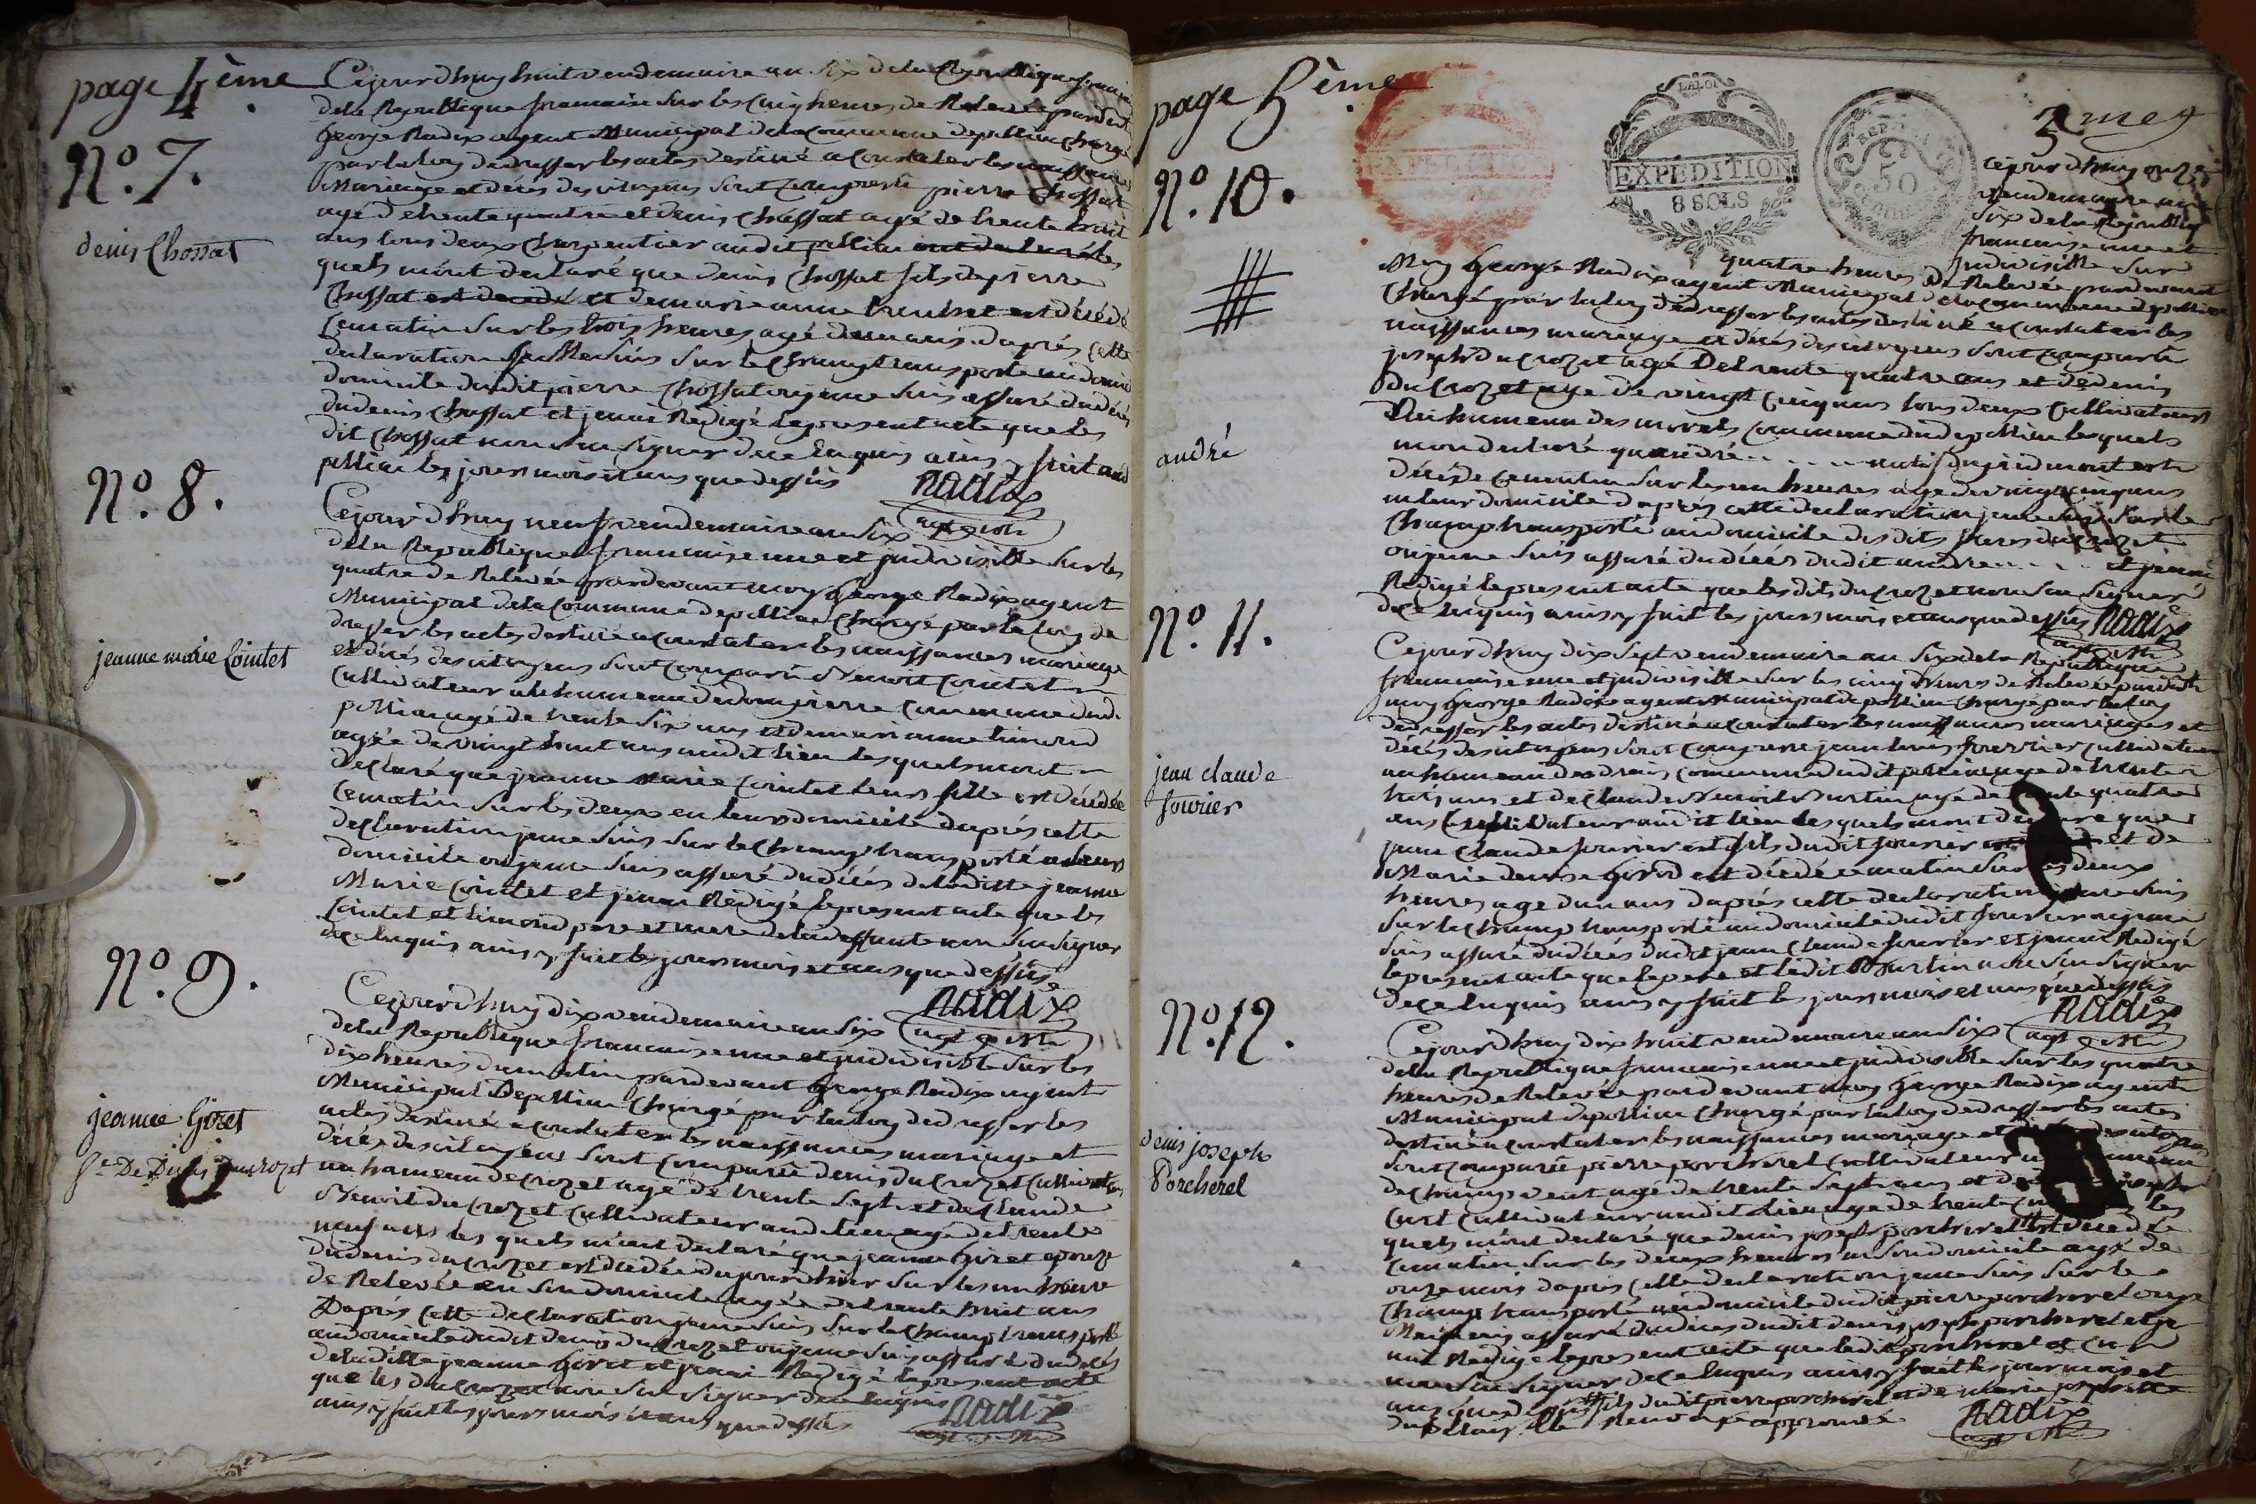 page 4ème
N°. 7.
denis Chossat
Cejourdhuy huit vendemiaire an Six dela Republique francaise
dela Republique francaise Sur les Cinq heures de Relevée pardevant
George Radix agent Municipal dela Commune depollia Chargé
par la loy dedresser les actes destiné a Constater les naissances
Mariage et décés des citoyens Sont Comparu pierre Chossat
agé de trente quatre et denis Chossat agé de trente huit
ans tous deux Charpentier audit pollia
quels m'ont declaré que denis Chossat fils de pierre
Chossat est decedé et demarie anne est décédé
Cematin Sur les trois heures agé deux ans daprés Cette
declaration Sur le Champ transporté au
domicile dudit pierre Chossat ou je me Suis assuré du décés
dudenis Chossat et jenai Redigé le present acte que les
dit Chossat non Su Signer de ce Enquis ainsy fait aud
pollia les jour mois et ans que dessus
Radix
agt
N°. 8.
jeanne marie Cointet
Cejourdhuy neuf vendemiaire an Six
dela Republique francaise une et jndivisible Sur les
quatre de Relevée pardevant moy George Radix agent
Municipal dela Commune depollia Chargé par la loy de
dresser les actes destiné a Constater les naissances mariage
et décés des citoyens Sont Comparu Benoit Cointet
Cultivateur au hameau de dompierre Commune dud.
pollia agé de trente Six ans et demarianne limond
agée de vingt huit ans audit lieu les quels mont
declaré que jeanne marie Cointet leurs fille est décédée
Cematin Sur les deux en leurs domicile daprés cette
declaration jeme Suis Sur le Champ transporté aleurs
domicile ou jeme Suis assuré dudécés deladitte jeanne
Marie Cointet et jenai Redigé le present acte que les
Cointet et limond pere et mere deladeffunte non Su Signer
dece Enquis ainsy fait les jours mois et ans que dessus
Radix
agt
N°. 9.
jeanne Goret
fe De Denis Ducrozet
Cejourdhuy dix vendemiaire an Six
dela Republique francaise une et jndivisible Sur les
dix heures dumatin pardevant George Radix agent
Municipal Depollia Chargé par la loy dedresser les
actes destiné a Constater les naissances mariage et
décés des citoyens Sont Comparu denis du Crozet Cultivateur
au hameau deCrozet agé de trente Sept et deClaude
Benoit du Crozet Cultivateur audit lieu agé de trente
neuf ans les quels m'ont declaré que jeanne Goret epouse
dudenis du Crozet est décédée dujourd'hier Sur les un heure
de Relevée en Son domicile agée de trente huit ans
Daprés Cette declaration jeme Suis Sur le Champ transporté
audomicile dudit denis du Crozet ou jeme Suis assuré dudécés
deladitte jeanne Goret et jenai Redigé le present acte
que les du Crozet non Su Signer dece Enquis
ainsy fait les jours mois et ans que dessus
Radix
agt
page 5ème
N°. 10.
andré
LA LOI
EXPEDITION
LA LOI
EXPÉDITION
8 SOLS
50
Cejourdhuy onze
vendemiaire an
Six dela Republiq
francaise une et
jndivisible Sur
quatre heures de Relevée pardevant
Moy George Radix agent Municipal dela Commune depollia
Chargé par la loy dedresser les actes destiné a Constater les
naissances mariage et décés des citoyens Sont Comparu
joseph du Crozet agé De trente quatre ans et dedenis
du Crozet agé de vingt Cinq ans tous deux Cultivateurs
Au hameau des morels Commune dudit pollia lesquels
mon declaré quandré . . . . natif du piedmont est
décédé Cematin Sur les un heures agé de vingt Cinq ans
en leur domicile d'aprés cette declaration jeme Suis Sur le
Champ transporté audomicile desdits freres ducrozet
ou jeme Suis assuré dudécés dudit andré . . . . et jenai
Redigé le present acte que lesdits du Crozet non Su Signer
dece Enquis ainsy fait les jours mois et ans que dessus Radix
agt
N°. 11.
jean claude
fourier
Cejourdhuy dix Sept vendemiaire an Six dela Republique
francaise une et jndivisible Sur les cinq heures de Relevée pardevant
moy George Radix agent Municipal de pollia Chargé par la loy
dedresser les actes destiné a Constater les naissances mariages et
décés des citoyens Sont Comparu jean louis fourier cultivateur
au hameau des Commune dudit pollia agé de trente
trois ans et deClaude Benoit Burtin agé de quatre
ans Cultivateur audit lieu les quels mont declaré que
jean Claude fourier est fils dudit fourier et de
Marie denise Girod est décédé cematin Sur les deux
heures agé dun ans daprés cette declaration jeme Suis
Sur le Champ transporté audomicile dudit fourier ou jeme
Suis assuré dudécés dudit jean Claude fourier et jenai Redigé
le present acte que le pere et ledit Burtin non Su Signer
dece Enquis ainsy fait les jours mois et ans que dessus
Radix
agt
N°. 12.
denis joseph
Porcherel
Cejourdhuy dix huit vendemiaire an Six
dela Republique francaise une et jndivisible Sur les quatre
heures de Relevée pardevant moy George Radix agent
Municipal depollia Chargé par la loy dedresser les actes
destiné a Constater les naissances mariage et des citoyens
Sont Comparu pierre porcherel Cultivateur au hameau
de Champvent agé de trente Sept ans et de joseph
Curt Cultivateur audit lieu agé de trente les
quels m'ont declaré que denis joseph porcherel est décédé
Cematin Sur les deux heures en Son domicile agé de
onze mois daprés Cette declaration jeme Suis Sur le
Champ transporté audomicile dudit pierre porcherel ou je
Me Suis assuré dudécés dudit denis joseph porcherel et je
nai Redigé le present acte que ledit porcherel et Curt
non Su Signer dece Enquis ainsy fait les jour mois et
ans que dessus fils dudit pierre porcherel et de marie josephte
Renvoi approuvé
Radix
agt